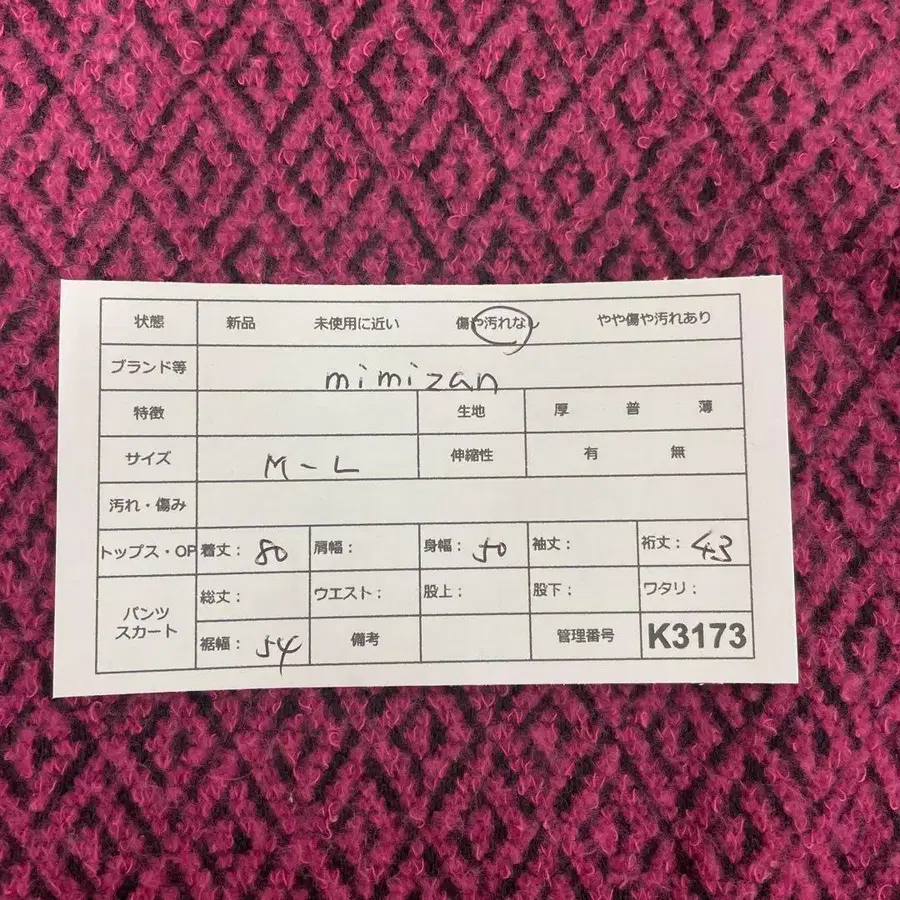 状態 新品 未使用に近い 傷や汚れなし やや傷や汚れあり
ブランド等 mimizan
特徴 生地 厚 普 薄
サイズ M-L 伸縮性 有 無
汚れ・傷み
トップス・OP 着丈：80 肩幅： 身幅：50 袖丈： 裄丈：43
パンツ スカート 総丈： ウエスト： 股上： 股下： ワタリ：
裾幅：54 備考 管理番号 K3173